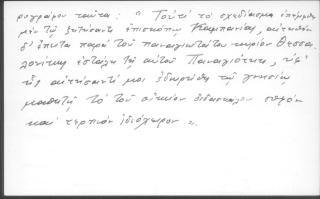 ρογράφου ταῦτα: "Τοῦτο τὸ σχεδίασμα ἐπέμφθη
μὲν τῷ ζητήσαντι ἐπισκόπῳ Καμπανίας, αἰτηθὲν
δ' ἔπειτα παρὰ τοῦ παναγιωτάτου κυρίου Θεσσα
λονίκης ἐστάλη τῇ αὐτοῦ Παναγιότητι, ὑφ'
ἧς αἰτήσαντί μοι ἐδωρήθη τῷ γνησίῳ
μαθητῇ τὸ τοῦ οἰκείου διδασκάλου σοφὸν
καὶ τερπνὸν ἰδιόχειρον".